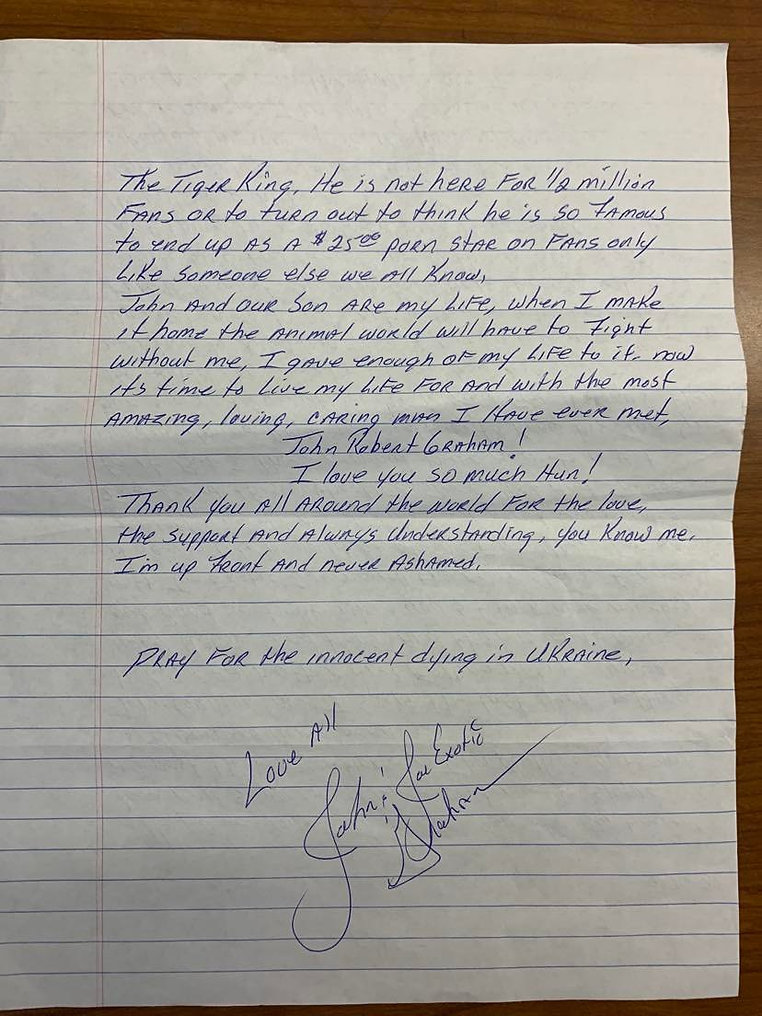 The Tiger King. He is not here for 1/2 million
fans or to turn out to think he is so famous
to end up as a $25.00 porn star on Fans only
like someone else we all know.
John and our son are my life, when I make
it home the animal world will have to fight
without me, I gave enough of my life to it. now
it's time to live my life for and with the most
amazing, loving, caring man I have ever met,
John Robert Graham!
I love you so much Hun!
Thank you all around the world for the love,
the support and always understanding, you know me.
I'm up front and never ashamed.
Pray for the innocent dying in Ukraine,
Love All
John & Joe Exotic
Graham